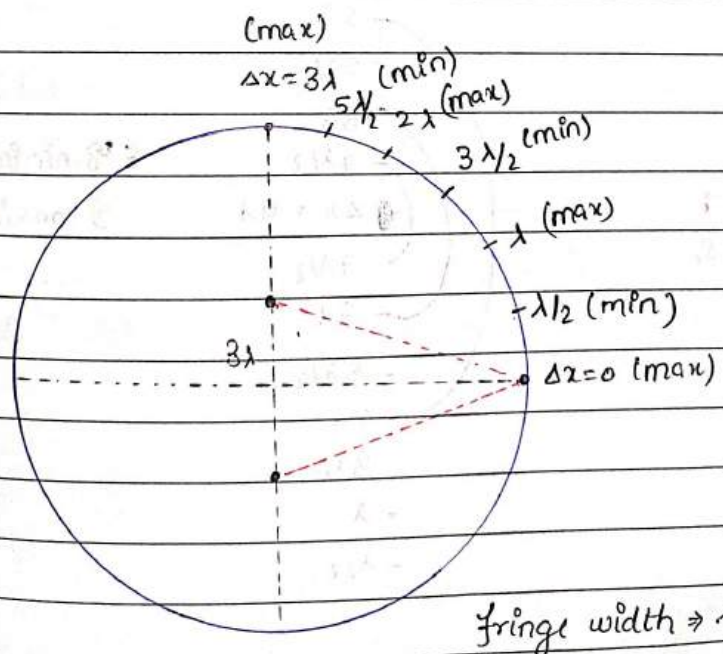 (max)
Δx=3λ (min)
5λ/2 2λ (max)
3λ/2 (min)
λ (max)
λ/2 (min)
3λ
Δx=0 (max)
fringe width ⇒